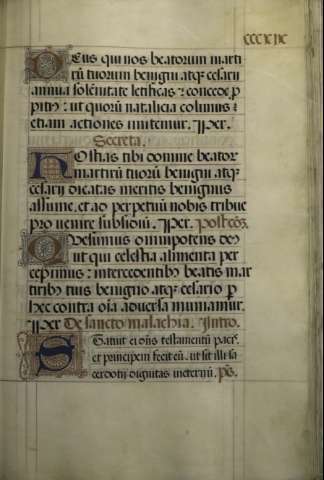 Deus qui nos beatorum marti
rũ tuorum benigni atq; cesarii
annua solẽnitate letificas: concede p
pitiꝰ: ut quorũ natalicia colimus:
etiam actiones imitemur. Per.
Secreta.
Hostias tibi domine beator
martirũ tuorũ benigni atq;
cesarii dicatas meritis benignus
assume, et ad perpetuũ nobis tribue
provenire subsidiũ. Per. Postcõ.
Quesumus omnipotens deꝰ
ut qui celestia alimenta per
cepimus: intercedentibꝰ beatis mar
tiribꝰ tuis benigno atq; cesario p
hec contra oĩa adversa muniamur.
Per De sancto malachia. Intro.
Statuit ei dñs testamentũ pacis
et principem fecit eũ. ut sit illi sa
cerdotii dignitas in eternũ. Ps.